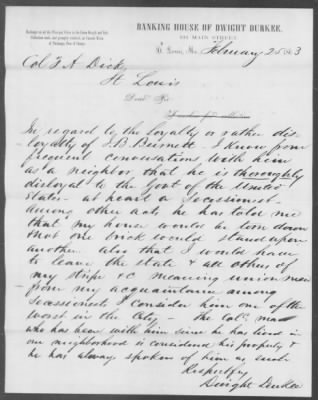 BANKING HOUSE OF DWIGHT DURKEE.
MAIN STREET
St Louis, Mo. February 25 1863
Col F A Dick
St Louis
Dear Sir
In regard to the loyalty or rather dis-
loyalty of J. B. Burnett - I know from
frequent conversations with him
as a neighbor that he is thoroughly
disloyal to the Govt of the United
States - at heart a secessionist -
Among other acts he has told me
that my house would be torn down
not one brick would stand upon
another also that I would have
to leave the state & all others of
my stripe &c meaning union men
from my acquaintance among
Secessionists I consider him one of the
worst in the City - the Cold man
who has been with him since he has lived in
our neighborhood is considered his property &
he has always spoken of him as such
Respectfy
Dwight Durkee